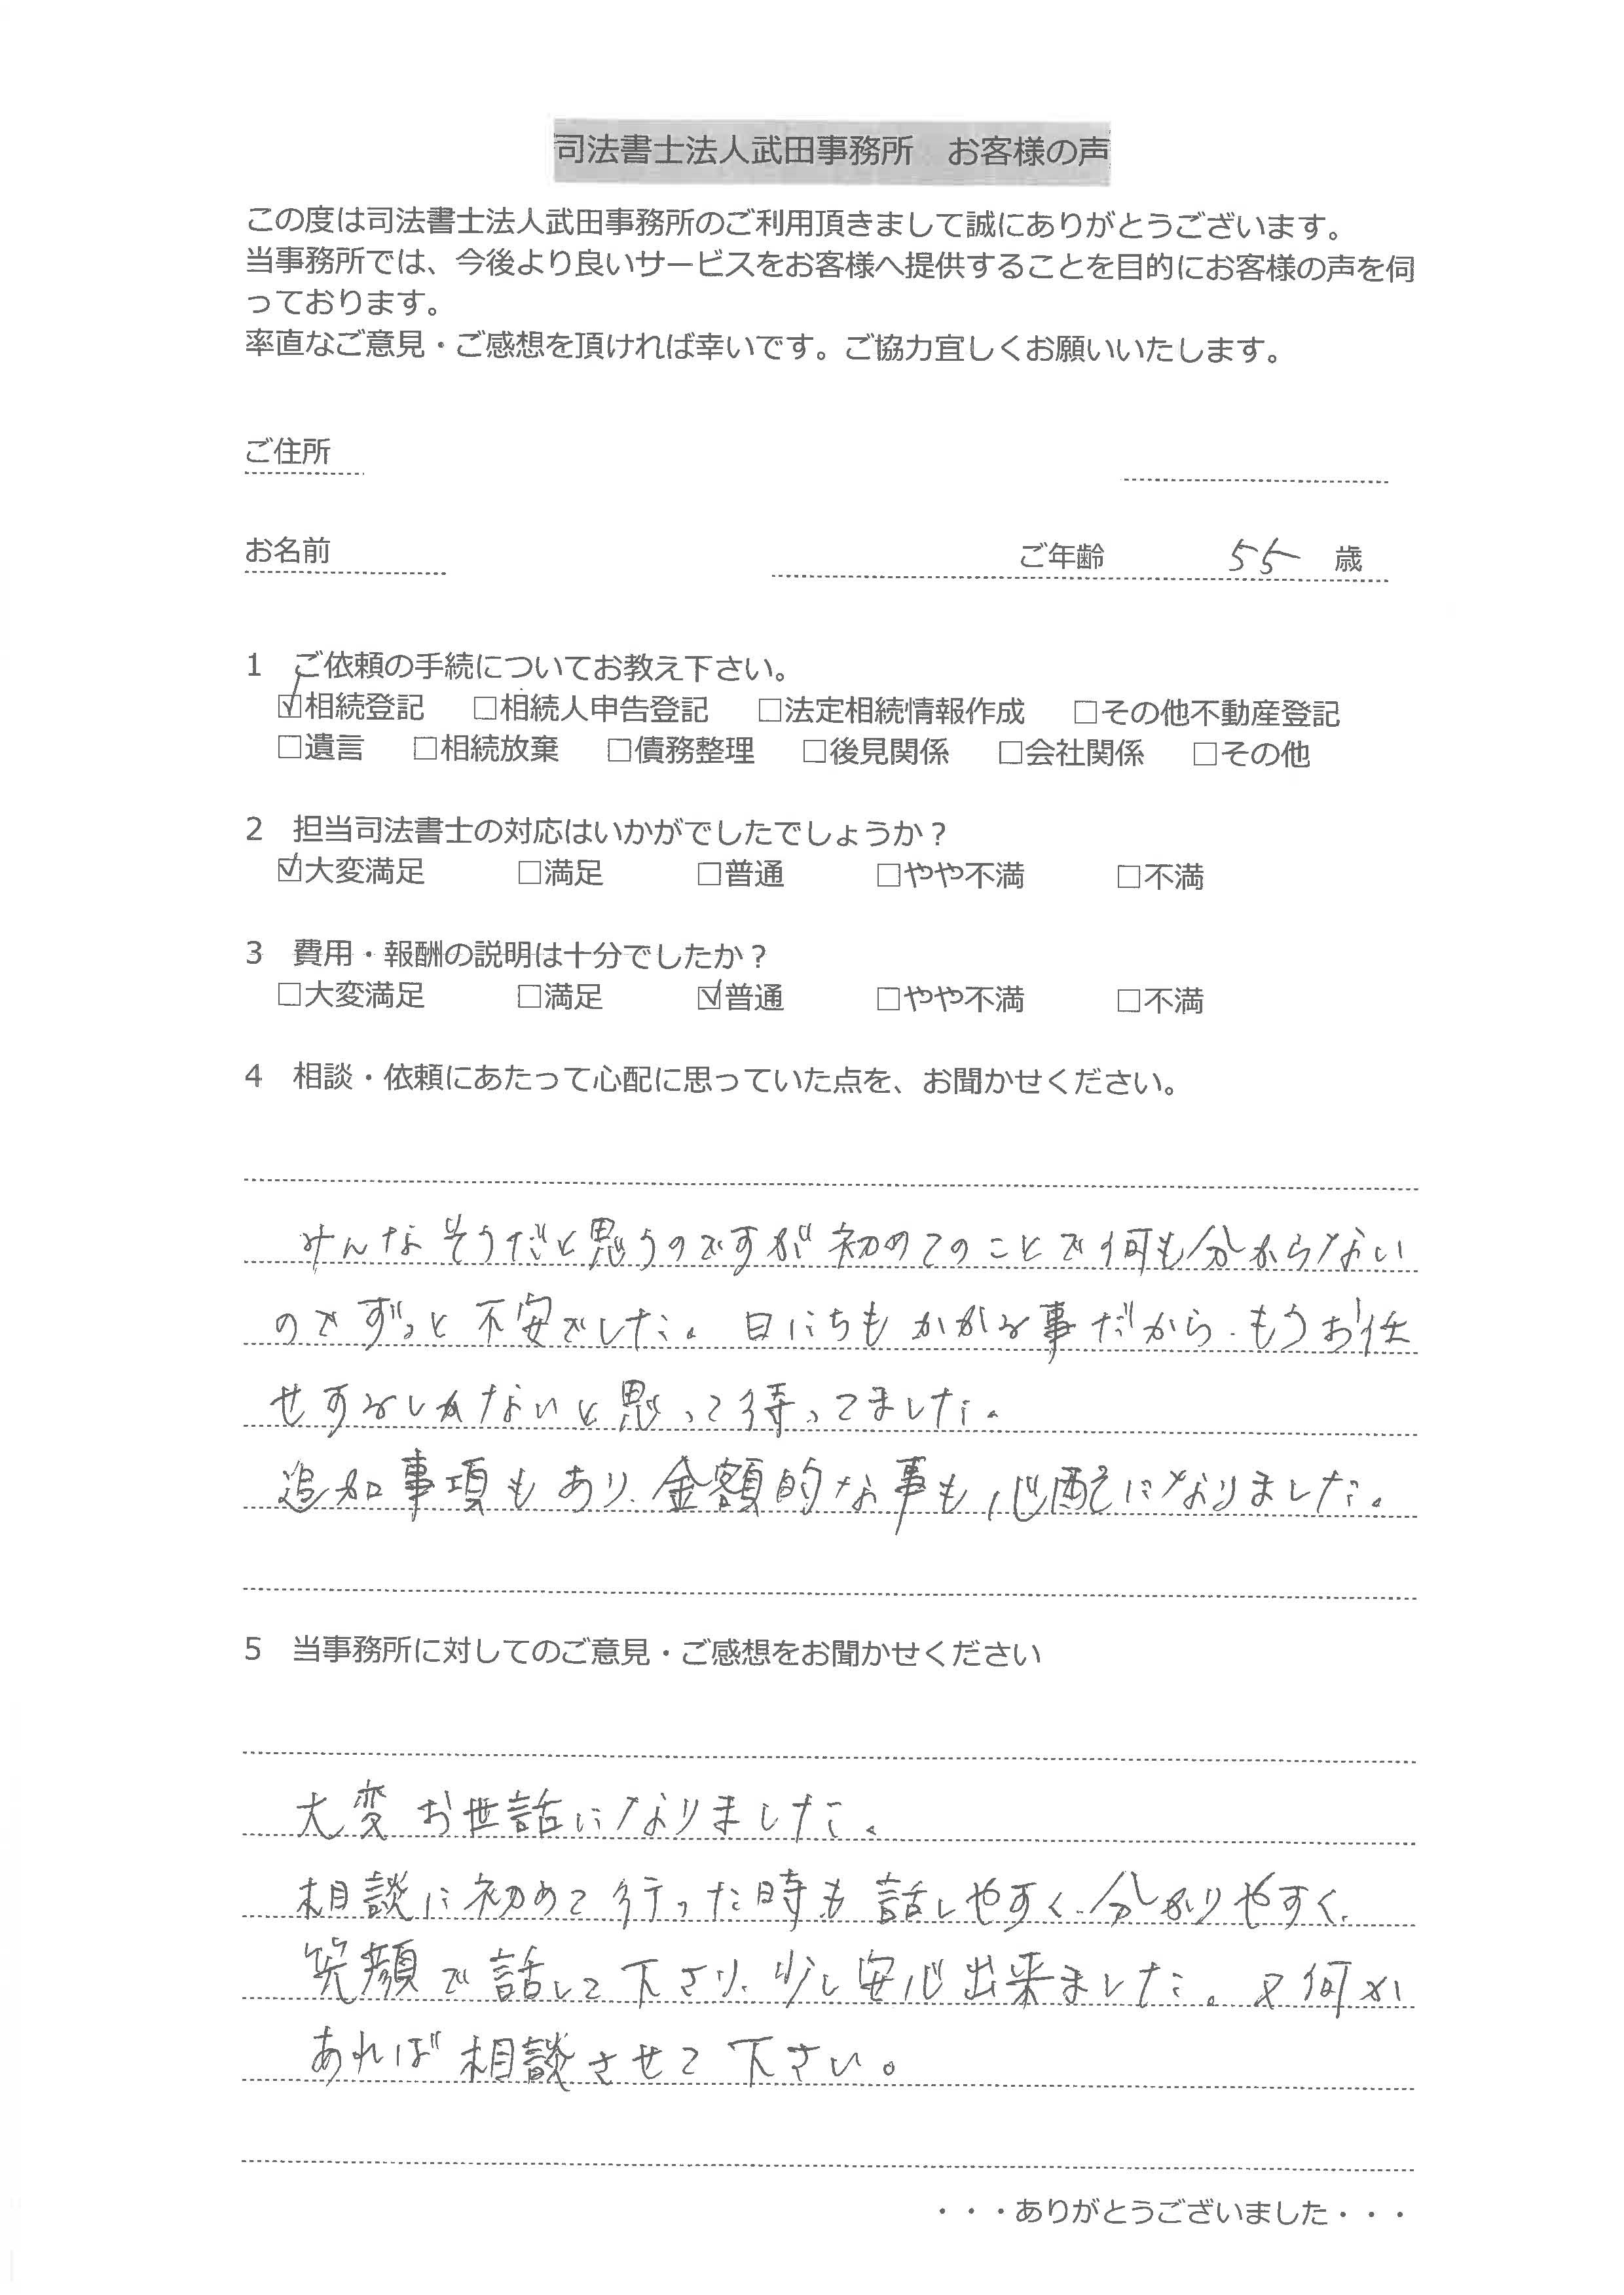 司法書士法人武田事務所　お客様の声
この度は司法書士法人武田事務所のご利用頂きまして誠にありがとうございます。
当事務所では、今後より良いサービスをお客様へ提供することを目的にお客様の声を伺
っております。
率直なご意見・ご感想を頂ければ幸いです。ご協力宜しくお願いいたします。
ご住所
お名前　ご年齢　55　歳
1　ご依頼の手続についてお教え下さい。
☑相続登記　□相続人申告登記　□法定相続情報作成　□その他不動産登記
□遺言　□相続放棄　□債務整理　□後見関係　□会社関係　□その他
2　担当司法書士の対応はいかがでしたでしょうか？
☑大変満足　□満足　□普通　□やや不満　□不満
3　費用・報酬の説明は十分でしたか？
□大変満足　□満足　☑普通　□やや不満　□不満
4　相談・依頼にあたって心配に思っていた点を、お聞かせください。
みんなそうだと思うのですが初めてのことで何も分からない
のでずっと不安でした。日にちもかかる事だから、もうお任
せするしかないと思って待ってました。
追加事項もあり、金額的な事も心配になりました。
5　当事務所に対してのご意見・ご感想をお聞かせください
大変お世話になりました。
相談に初めて行った時も話しやすく、分かりやすく、
笑顔で話して下さり、少し安心出来ました。又何か
あれば相談させて下さい。
・・・ありがとうございました・・・